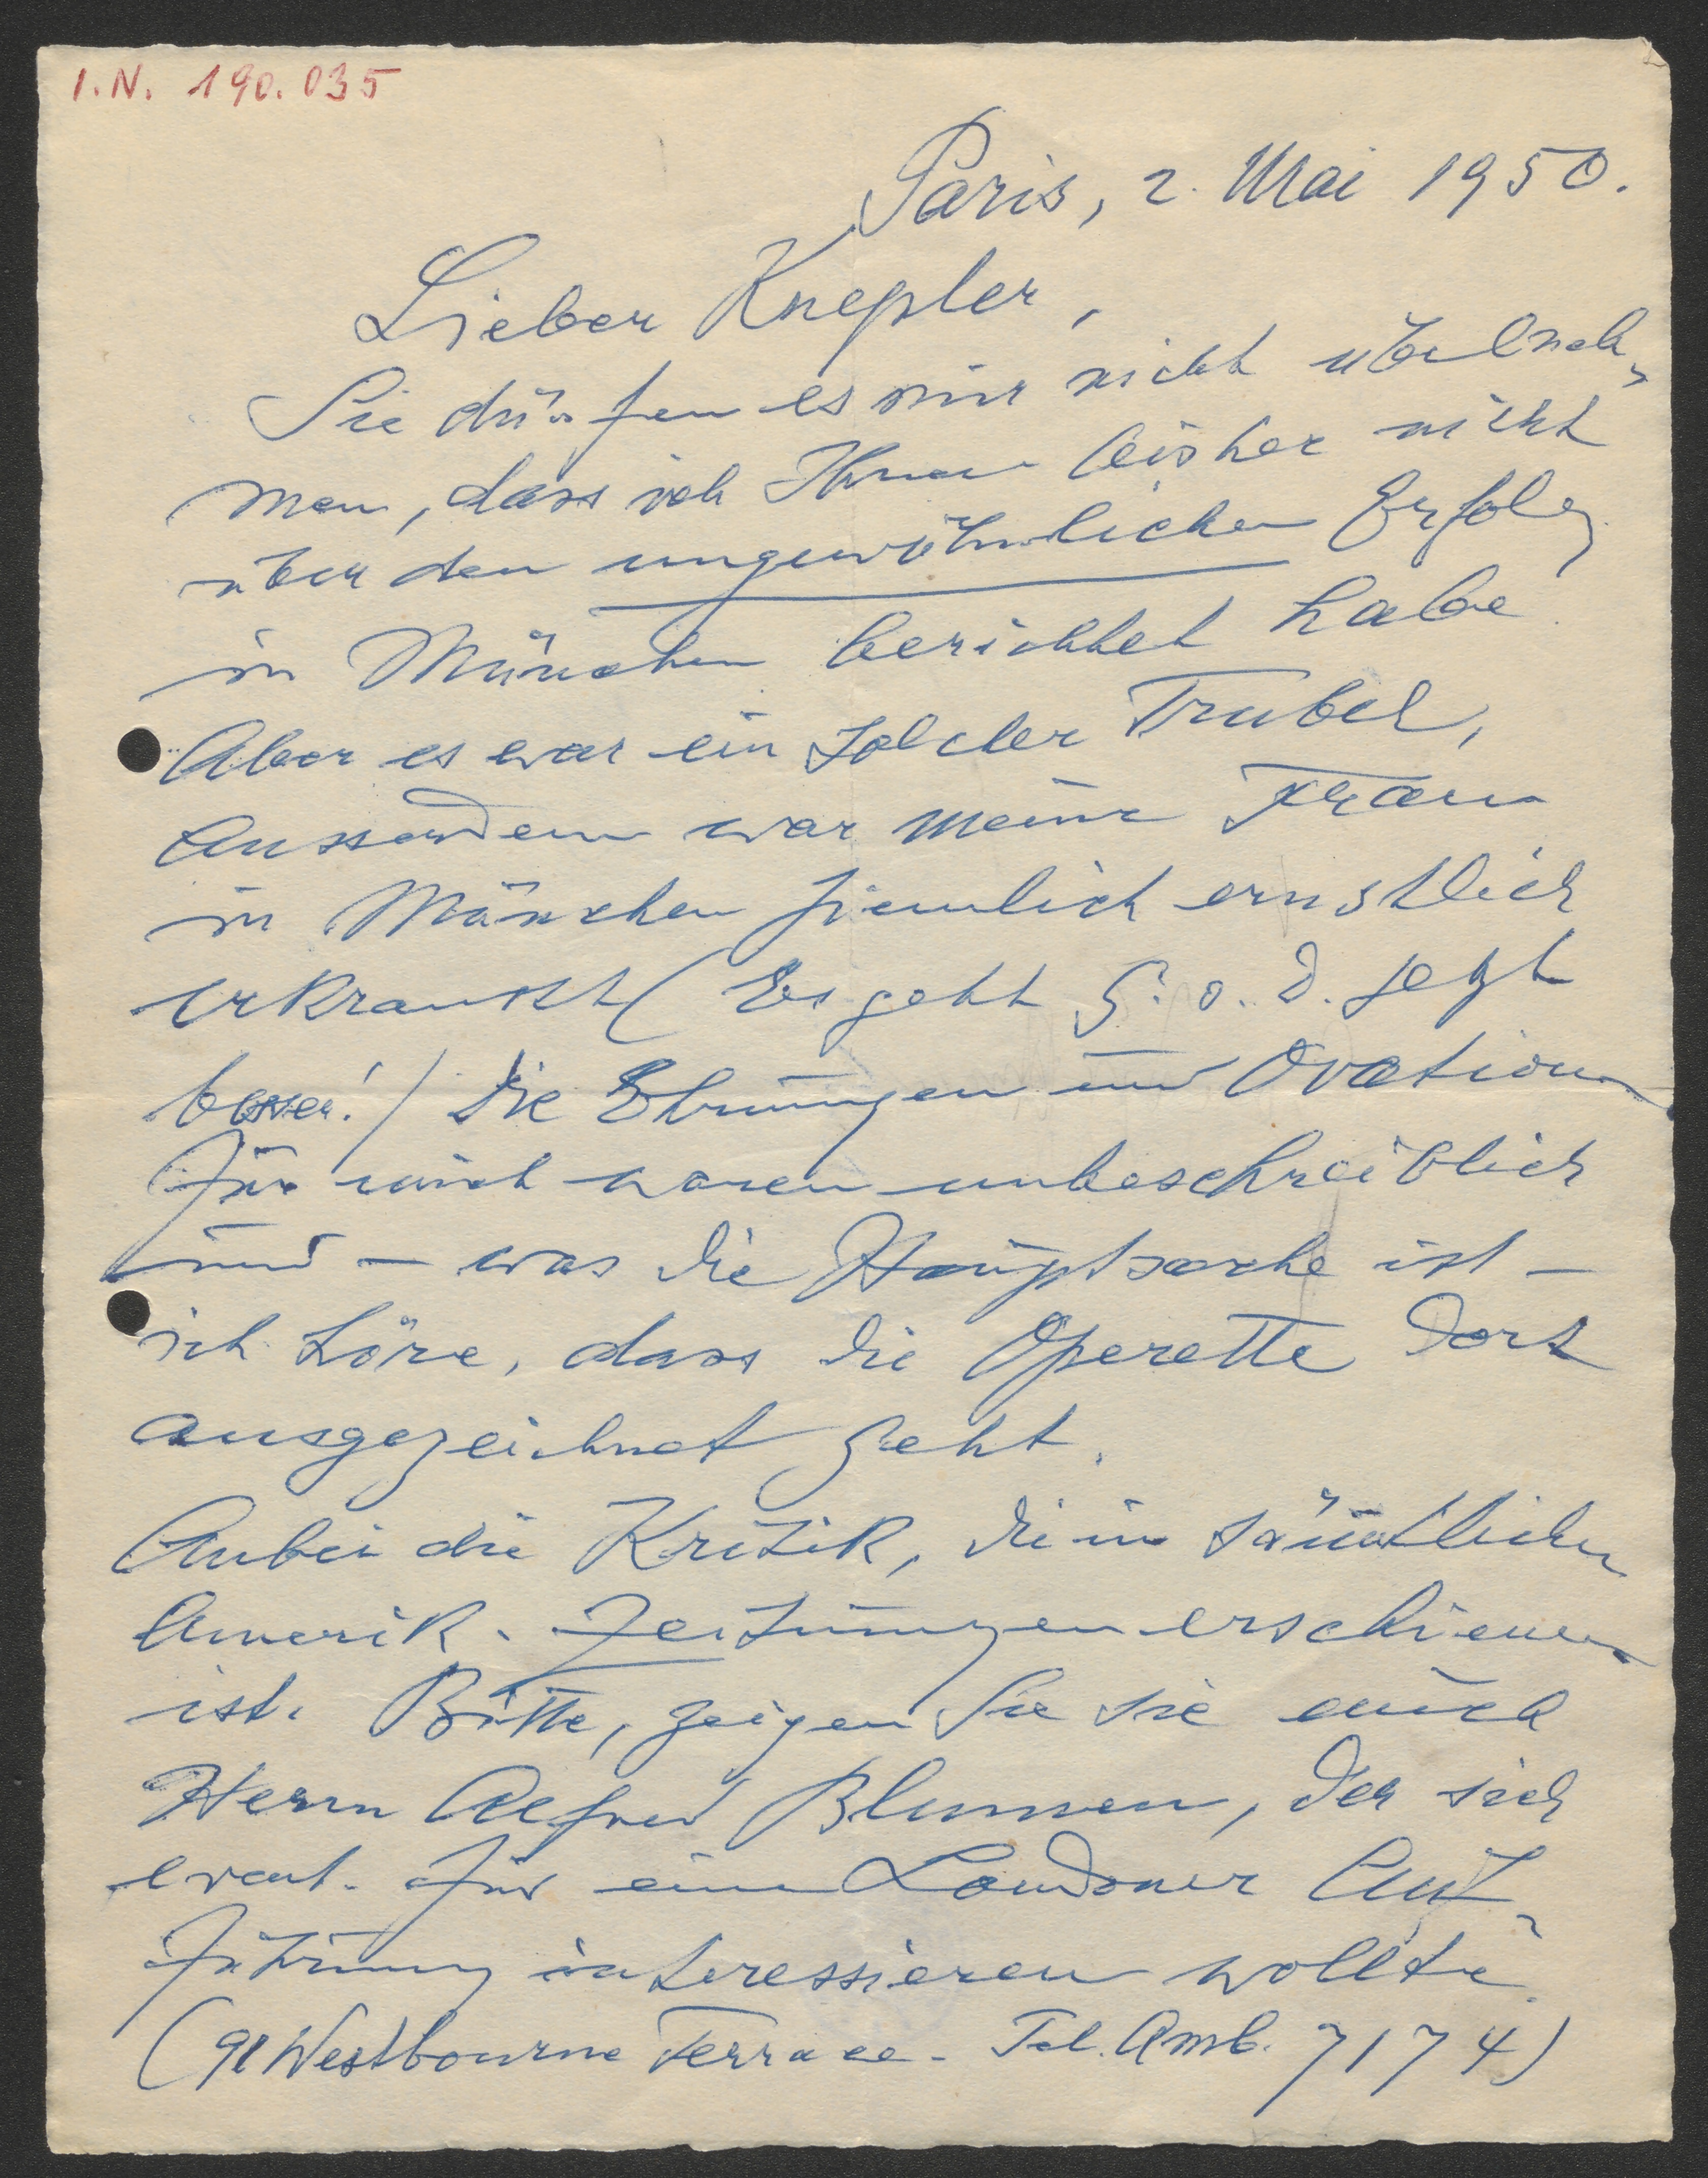 I.N. 190.035
Paris, 2. Mai 1950.
Lieber Knepler,
Sie dürfen es mir nicht übelneh-
men, dass ich Ihnen bisher nicht
über den ungewöhnlichen Erfolg
in München berichtet habe.
Aber es war ein solcher Trubel,
ausserdem war meine Frau
in München ziemlich ernstlich
erkrankt (Es geht G. s. D. jetzt
besser!) Die Ehrungen und Ovationen
für mich waren unbeschreiblich
und – was die Hauptsache ist –
ich höre, dass die Operette dort
ausgezeichnet geht.
Anbei die Kritik, die in sämtlichen
Amerik. Zeitungen erschienen
ist. Bitte, zeigen Sie sie auch
Herrn Alfred Blumen, der sich
event. für eine Londoner Auf-
führung interessieren wollte
(91 Westbourne Terrace - Tel. Amb. 7174)